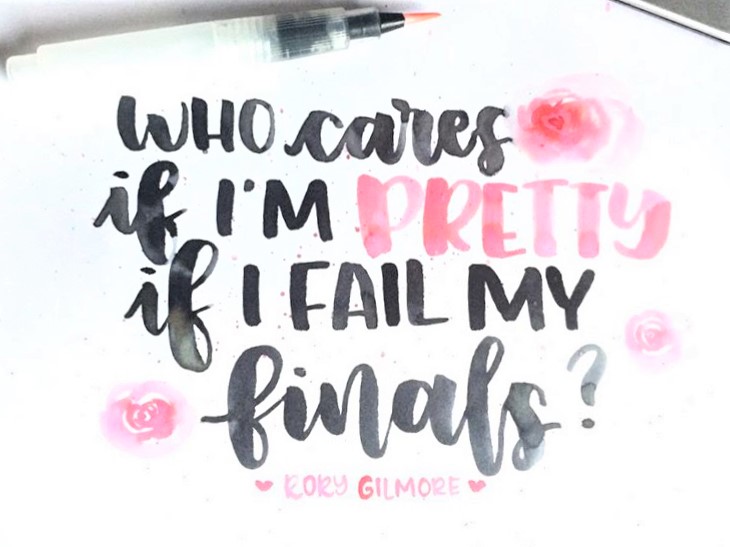 WHO cares
if I'M PRETTY
if I FAIL MY
finals?
RORY GILMORE